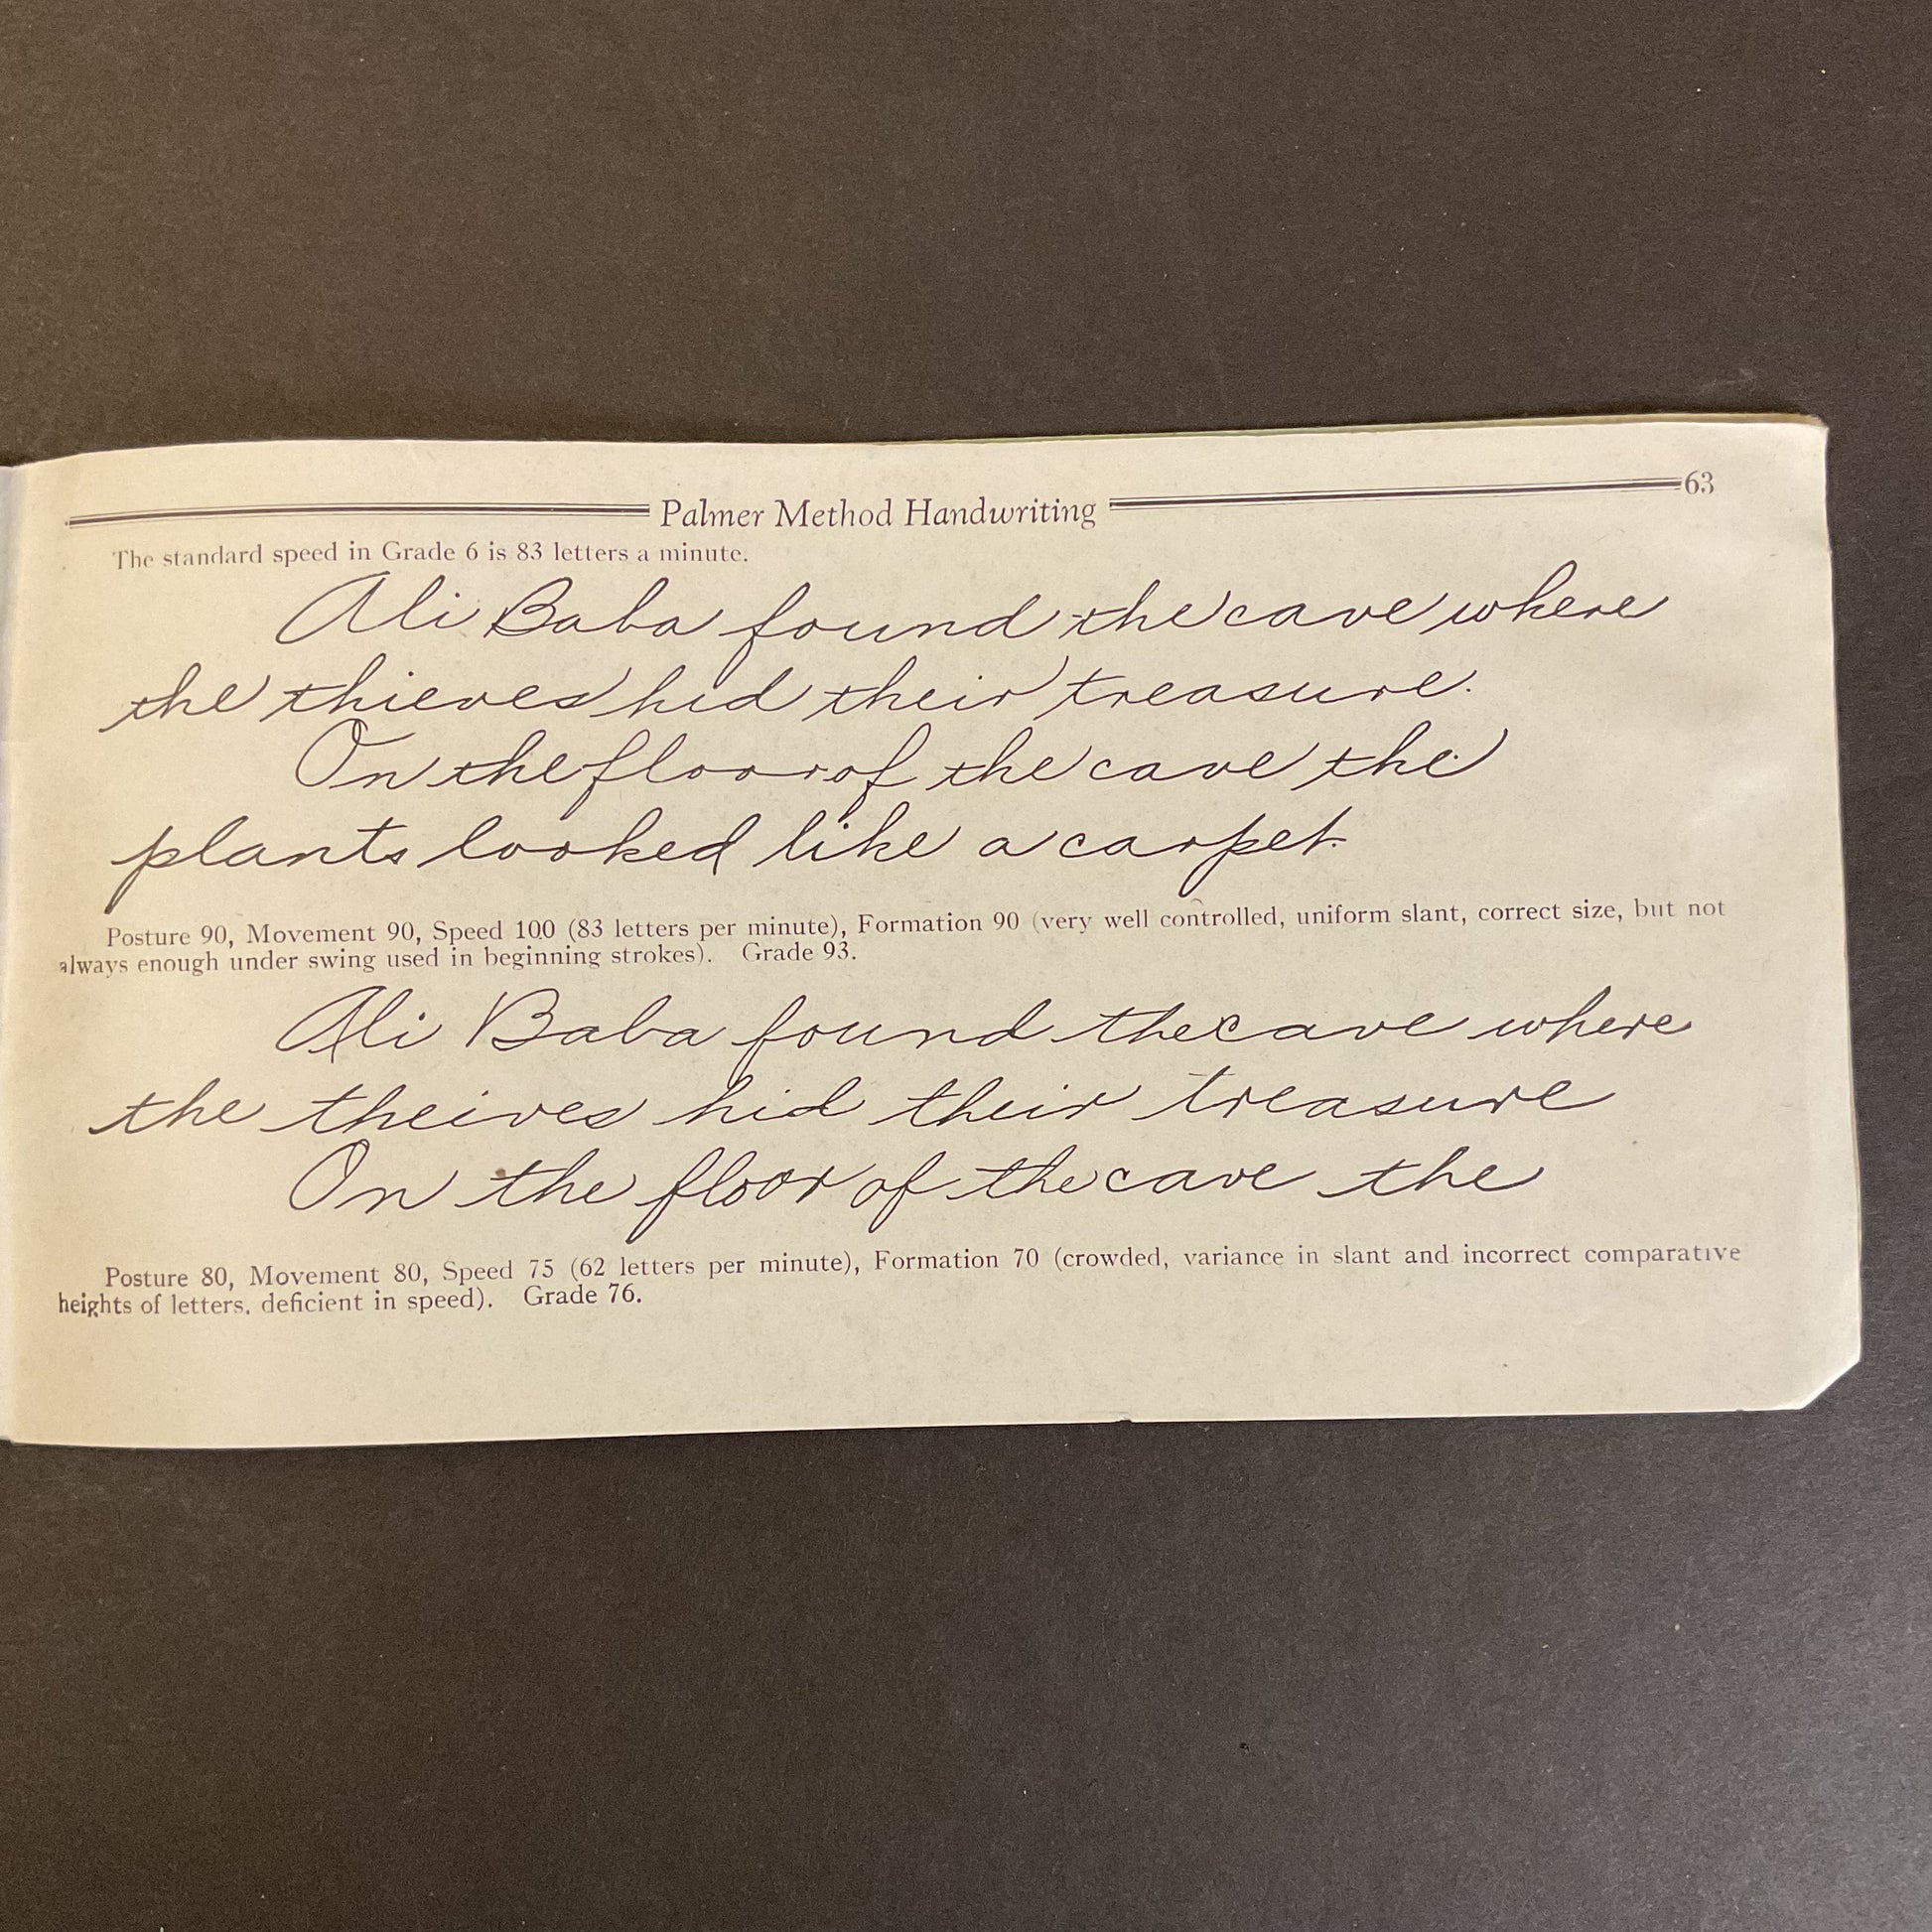 Palmer Method Handwriting 63
The standard speed in Grade 6 is 83 letters a minute.
Ali Baba found the cave where
the thieves hid their treasure.
On the floor of the cave the
plants looked like a carpet.
Posture 90, Movement 90, Speed 100 (83 letters per minute), Formation 90 (very well controlled, uniform slant, correct size, but not
always enough under swing used in beginning strokes). Grade 93.
Ali Baba found the cave where
the theives hid their treasure
On the floor of the cave the
Posture 80, Movement 80, Speed 75 (62 letters per minute), Formation 70 (crowded, variance in slant and incorrect comparative
heights of letters, deficient in speed). Grade 76.